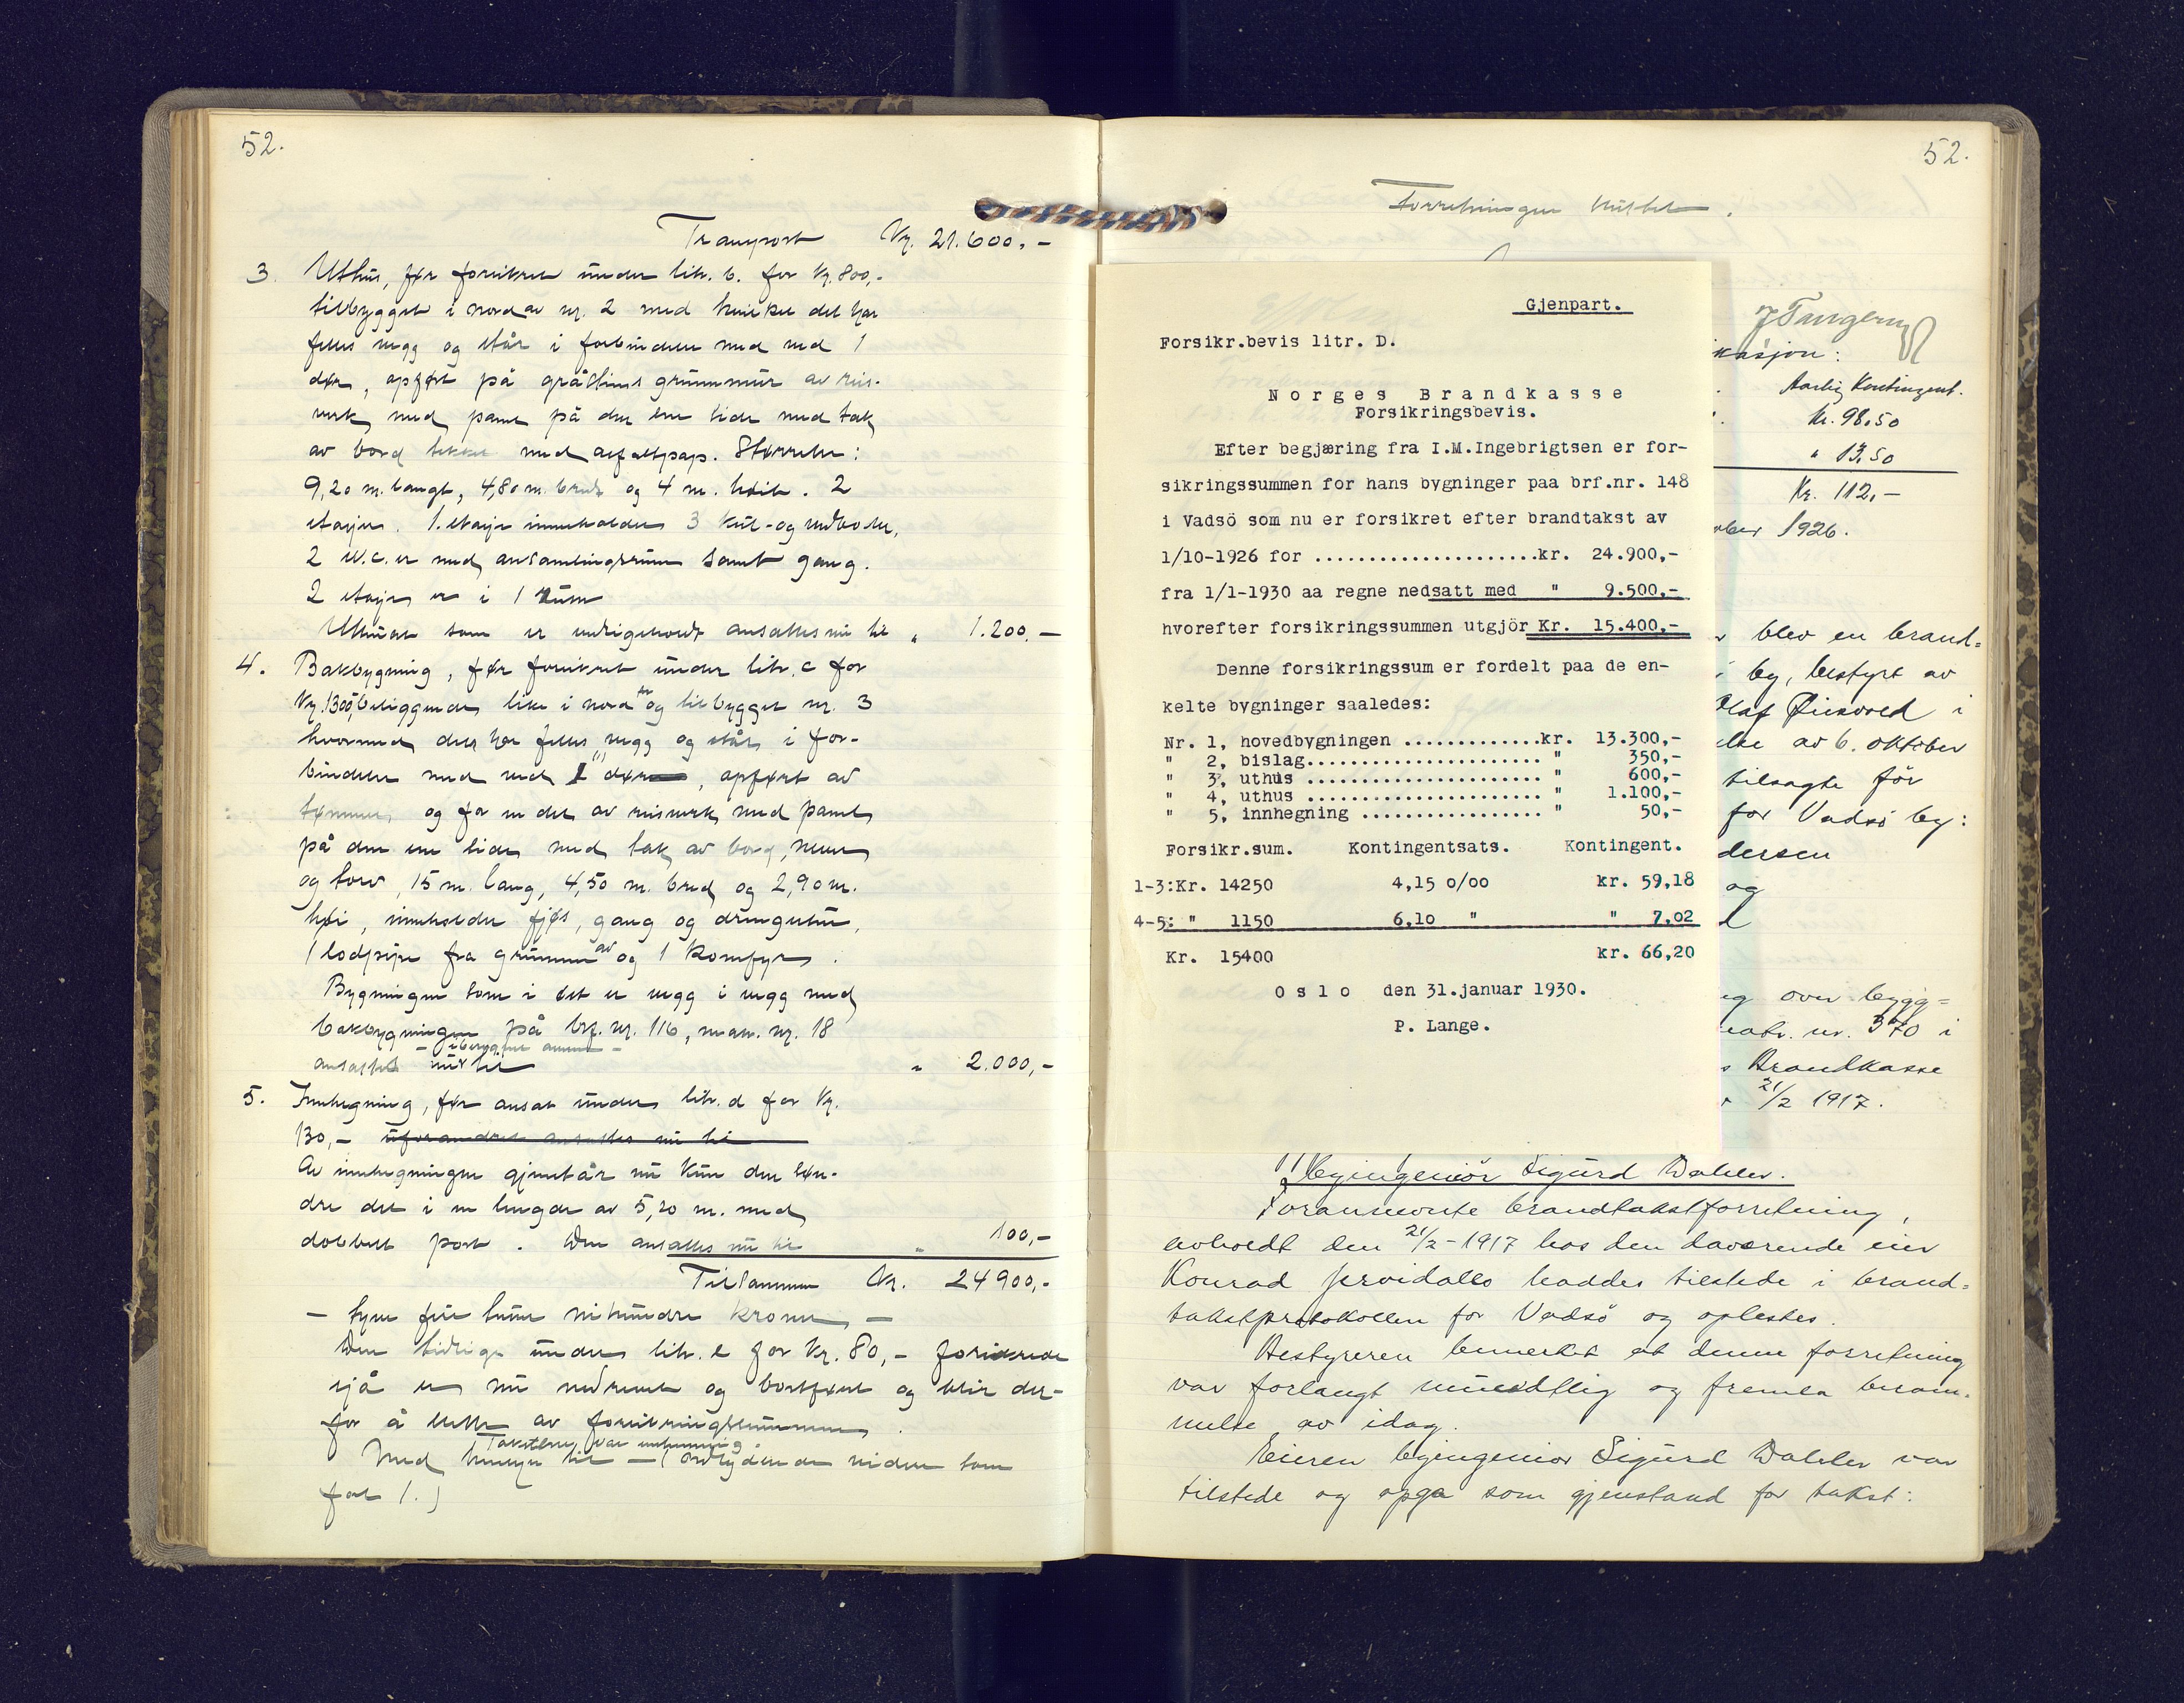 52.
Transport Kr. 21.600,-
3. Uthus, før forsikret under litr. b. for Kr. 800,-
tilbygget i nord av nr. 2 med hvilket det har
felles vegg og står i forbindelse med ved 1
dør, opført på gråstens grunnmur av reis-
verk med panel på den ene side med tak
av bord tekket med asfaltpap. Størrelse:
9,20 m. langt, 4,80 m. bredt og 4 m. høit. 2
etasjer. 1. etasje inneholder 3 kul- og vedboder,
2 w.c. er med ansamlingsrum samt gang.
2 etasje er i 1 rum
Uthuset som er vedligeholdt ansættes nu til " 1.200,-
4. Bakbygning, før forsikret under litr. c for
Kr. 1300,- beliggende like i nord for og tilbygget nr. 3
hvormed den har felles vegg og står i for-
bindelse med ved 1 dør, opført av
tømmer og for en del av reisverk med panel
på den ene side med tak av bord, never
og torv, 15 m. lang, 4,50 m. bred og 2,90 m.
høi, inneholder fjøs, gang og drengestue,
1 lodpipe fra grunnen av og 1 komfyr.
Bygningen som i øst er vegg i vegg med
bakbygningen på brf. nr. 116, matr. nr. 18
ansattes nu til " 2.000,-
5. Innhegning, før ansat under litr. d for Kr.
130,- uforandret ansættes nu til
Av innhegningen gjenstår nu kun den søn-
dre del i en lengde av 5,20 m. med
dobbelt port. Den ansattes nu til " 100,-
Tilsammen Kr. 24900,-
- tyve fire tusen nihundre kroner -
Den tidlige under litr. e for Kr. 80,- forsikrede
sjå er nu nedrevet og bortført og blir der-
for å slette av forsikringssummen.
Taksten var enstemmig.
Med hensyn til - (Ordlydende videre som
for 1.)
52.
Forretningen sluttet.
J Tangeru
kasjon:
Aarlig Kontingent.
Kr. 98.50
" 13.50
Kr. 112,-
ober 1926.
Gjenpart.
Forsikr.bevis litr. D.
Norges Brandkasse
Forsikringsbevis.
Efter begjæring fra I.M.Ingebrigtsen er for-
sikringssummen for hans bygninger paa brf.nr. 148
i Vadsö som nu er forsikret efter brandtakst av
1/10-1926 for .....................kr. 24.900,-
fra 1/1-1930 aa regne nedsatt med " 9.500,-
hvorefter forsikringssummen utgjör Kr. 15.400,-
Denne forsikringssum er fordelt paa de en-
kelte bygninger saaledes:
Nr. 1, hovedbygningen .............kr. 13.300,-
" 2, bislag...................... " 350,-
" 3, uthus ...................... " 600,-
" 4, uthus ...................... " 1.100,-
" 5, innhegning ................. " 50,-
Forsikr.sum. Kontingentsats. Kontingent.
1-3:Kr. 14250 4,15 o/oo kr. 59,18
4-5: " 1150 6,10 " " 7,02
Kr. 15400 kr. 66,20
Oslo den 31.januar 1930.
P. Lange.
blev en brand=
by, bestyrt av
Olaf Øiesvold i
else av 6. oktober
tilsagte för
for Vadsö by:
dersen
og
d
eg over bygg=
matr. nr. 370 i
s Brandkasse
21/2 1917.
byingeniör Sigurd Dahler.
Foranseværte brandtakstforretning,
avholdt den 21/2-1917 hos den daværende eier
Konrad Jervidalo haddes tilstede i brand=
takstprotokollen for Vadsö og oplestes.
Bestyreren bemerket at denne forretning
var forlangt mundtlig og fremla beram-
melse av idag.
Eieren byingeniör Sigurd Dahler var
tilstede og opga som gjenstand for takst: